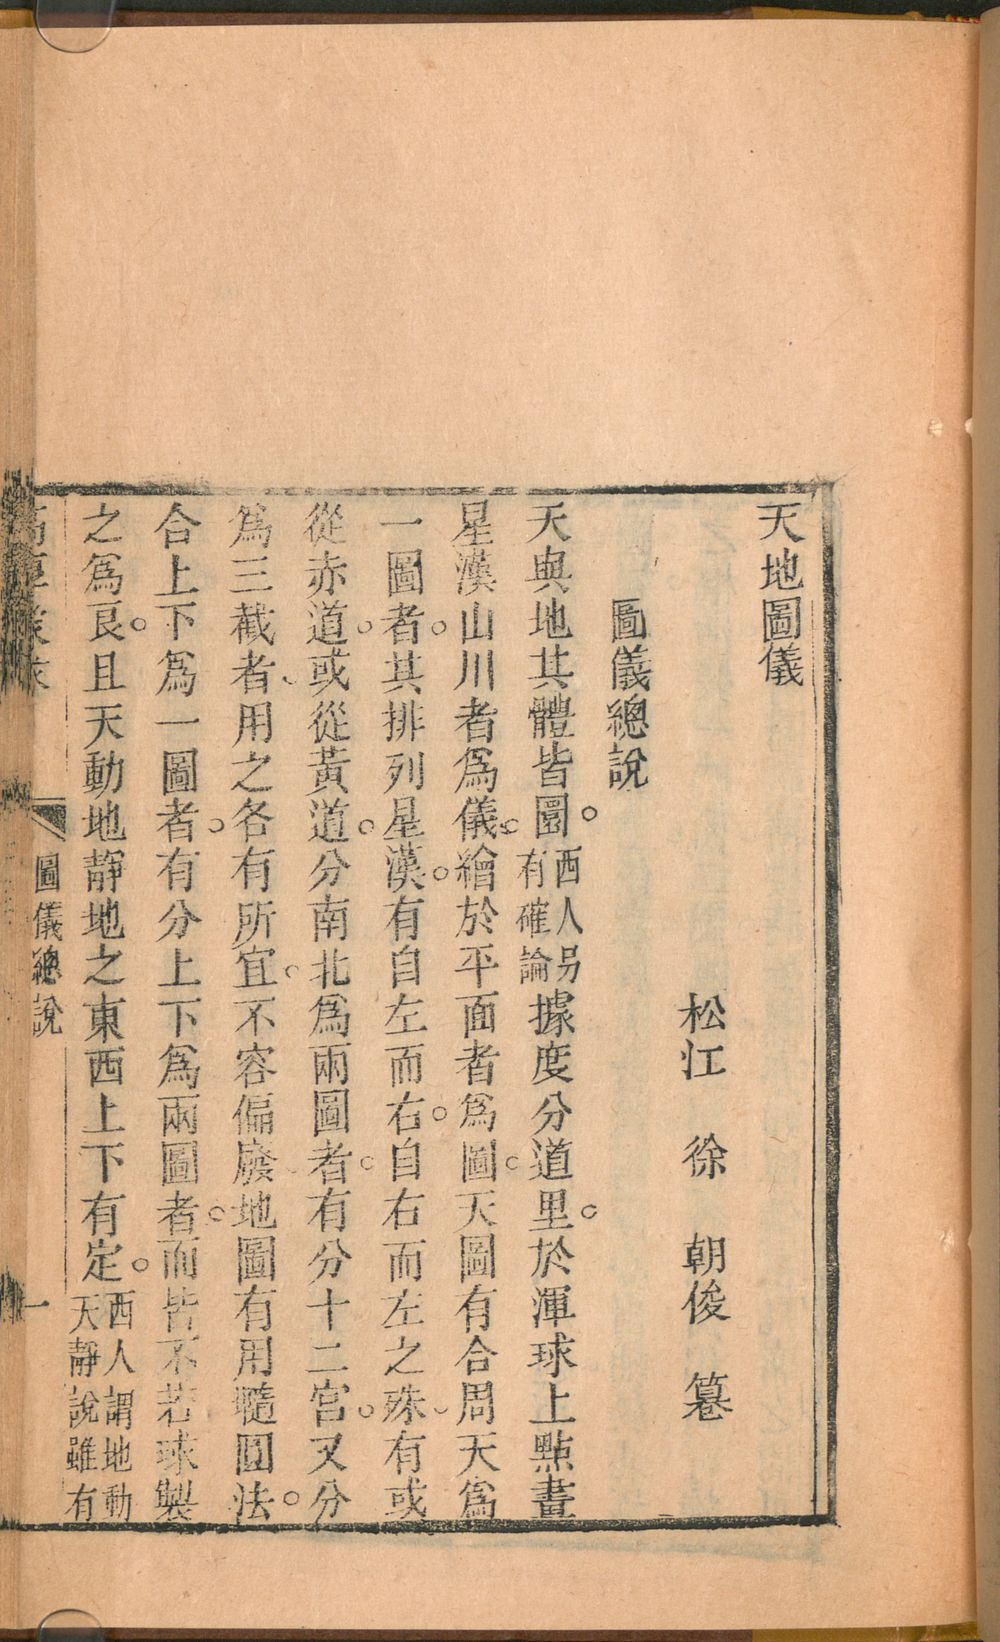 天地圖儀
松江　徐　朝俊　纂
圖儀總說
天與地其體皆圓。西人另有確論據度分道里。於渾球上點畫
星漢山川者爲儀。繪於平面者爲圖。天圖有合周天爲
一圖者。其排列星漢。有自左而右。自右而左之殊、有或
從赤道。或從黃道。分南北爲兩圖者。有分十二宮。又分
爲三截者、用之各有所宜。不容偏廢、地圖有用橢圓法。
合上下爲一圖者。有分上下爲兩圖者。而皆不若球製
之爲良。且天動地靜地之東西上下有定。西人謂地動天靜說雖有
高厚蒙求
圖儀總說
一